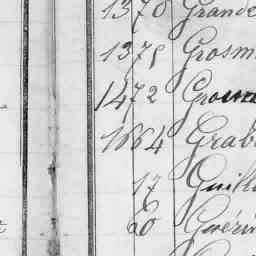 1370 Grande
1375 Grosm
1472
1664 Grab
17 Guill
20 Guérin